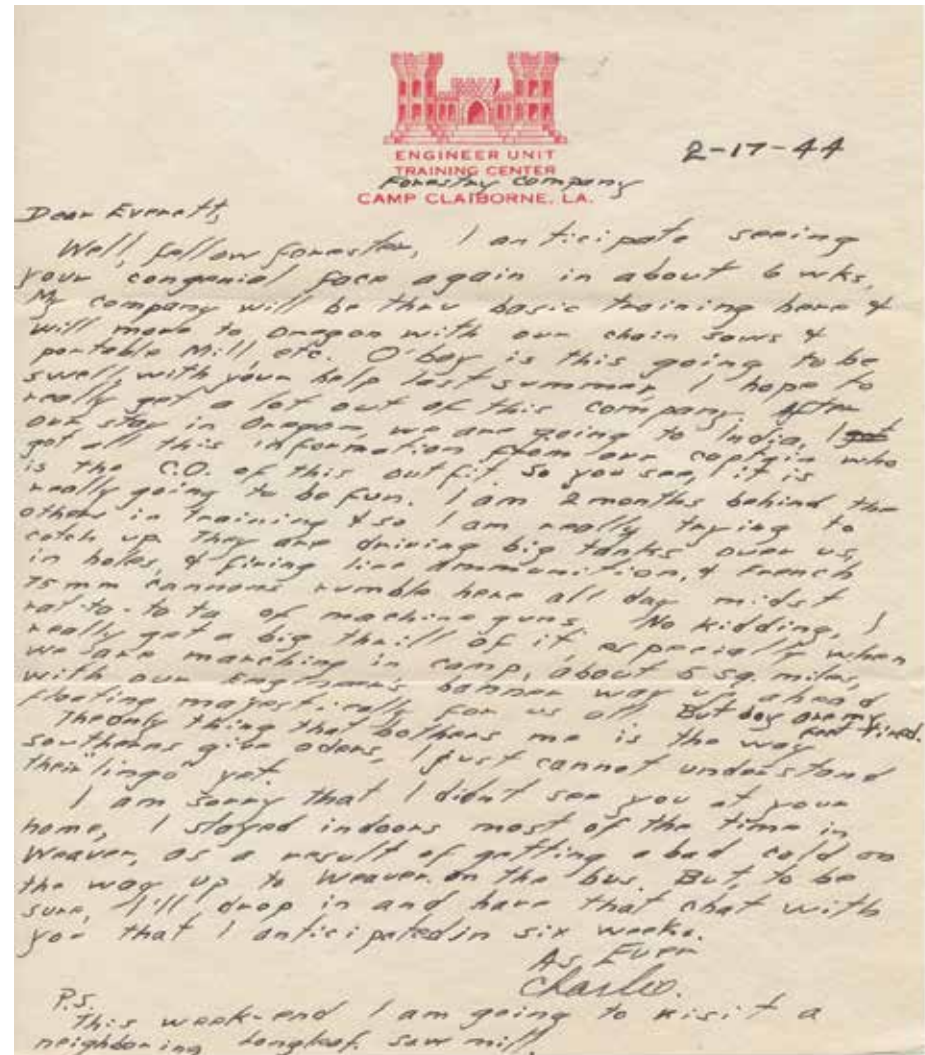 ENGINEER UNIT
TRAINING CENTER
Forestry Company
CAMP CLAIBORNE, LA.
2-17-44
Dear Everett,
Well, fellow forester, I anticipate seeing
your congenial face again in about 6 wks.
My company will be thru basic training here &
will move to Oregon with our chain saws &
portable Mill, etc. O'boy is this going to be
swell, with your help last summer, I hope to
really get a lot out of this company. After
our stay in Oregon we are going to India, I got
got all this information from our captain who
is the C.O. of this outfit. So you see, it is
really going to be fun. I am 2 months behind the
others in training & so I am really trying to
catch up. They are driving big tanks over us,
in holes, & firing live ammunition, & French
75 mm cannons rumble here all day midst
rat-to-to ta of machine guns. No kidding, I
really get a big thrill of it, especially when
we are marching in camp, about 5 sq. miles,
with our Engineer's banner way up ahead
floating magestically for us all. But boy are my
feet tired.
The only thing that bothers me is the way
southerns give oders, I just cannot understand
their "lingo" yet.
I am sorry that I didnt see you at your
home, I stayed indoors most of the time in
Weaver, as a result of getting a bad cold on
the way up to Weaver. on the bus. But, to be
sure, I'll drop in and have that chat with
you that I anticipated in six weeks.
As Ever
Charlie.
P.S.
This week-end I am going to visit a
neighboring longleaf saw mill.